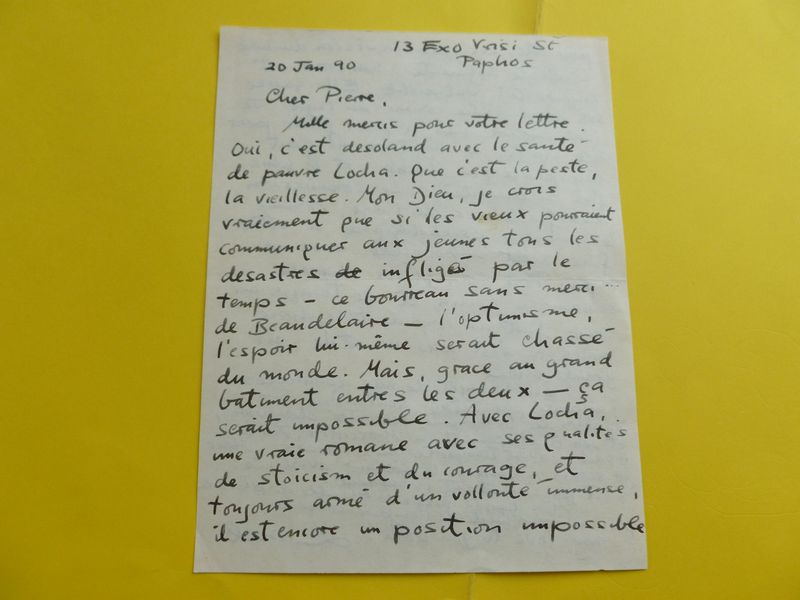 13 Exo Vrisi St
20 Jan 90 Paphos
Cher Pierre,
Mille mercis pour votre lettre.
Oui, c'est desoland avec le santé
de pauvre Locha. Que c'est la peste,
la vieillesse. Mon Dieu, je crois
vraiement que si les vieux pourraient
communiquer aux jeunes tous les
desastres de infligés par le
temps – ce bourreau sans merci...
de Beaudelaire – l'optimisme,
l'espoir lui-même serait chassé
du monde. Mais, grace au grand
batiment entres les deux – ça
serait impossible. Avec Locha,
une vraie romane avec ses qualités
de stoicism et du courage, et
toujours armé d'un vollonté immense,
il est encore un position impossible